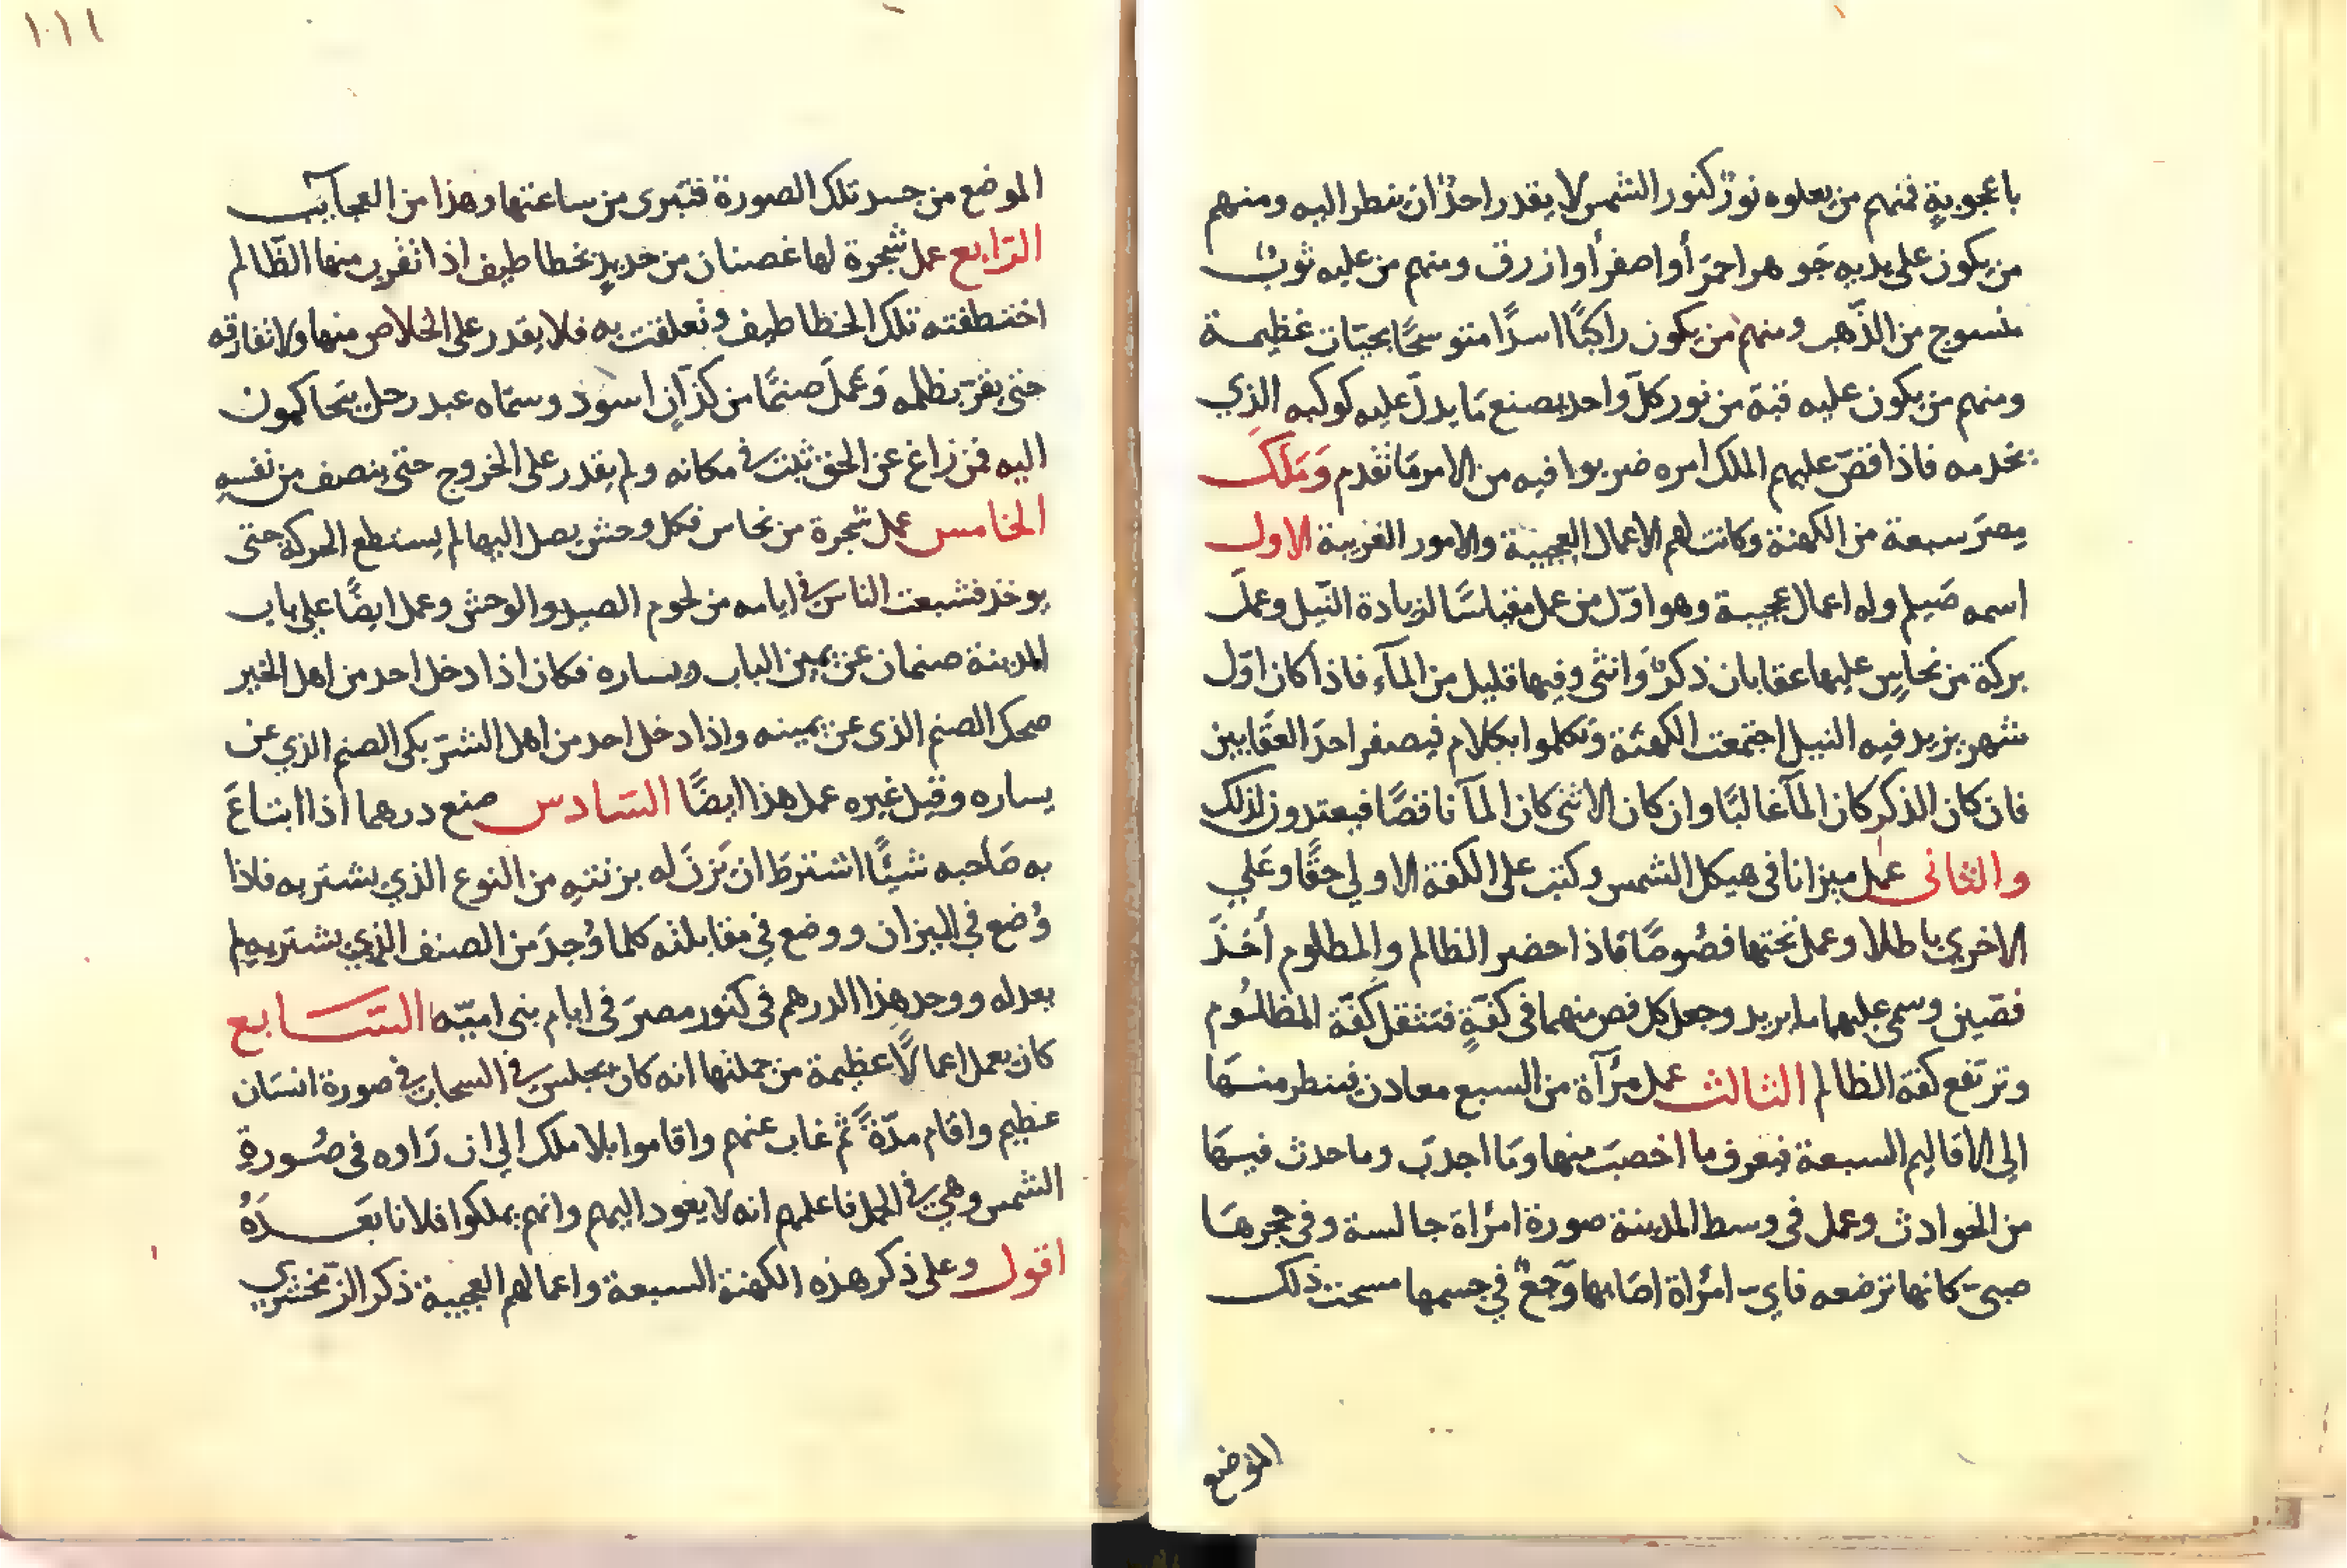 باعجوبةٍ فمنهم من يعلوه نورٌ كنور الشمس لا يقدر احدٌ ان ينظر اليه ومنهم
من يكون على يديه جَوهر احمرَ أو اصفرُ أو ازرق ومنهم من عليه ثوبٌ
منسوج من الذّهب ومنهم من يكون راكبًا اسدًا متوسحًا بحيّات عظيمة
ومنهم من يكون عليه قبّة من نور كلّ واحد بصنع مَا يدلّ عليه كوكبه الذِي
يخدمه فاذا قضّ عليهم الملك امره ضربوا فيه من الامر مَا تقدم وَمَلَكَ
مِصرَ سبعة من الكهنة وكانت لهم الاعمال العجيبة والامور الغريبة الاول
اسمه صَيلم وله اعمال عجيبة وهو اوّل من عمل مقياسًا لزيادة النّيل وعملَ
بركة من نحاسٍ عليها عقابان ذكرٌ وَانثى وفيها قليل من المآء فاذا كان اوّل
شهر يزيد فيه النيل اجتمعت الكهنَة وتكلموا بكلام فيصفر احدَ العقَابين
فان كان الذكر كان المآ غالبًا وان كان الانثى كان المآ ناقصًا فيعتدون لذلك
والثانى عمل ميزانا فى هيكل الشمس وكتب على الكفة الاولي حقًا وعَلي
الاخري باطلا وعمل تحتها فصُوصًا فاذا حضر الظالم والمظلوم أخَذَ
فصّين وسمى عليهما ما يريد وجعل كل فص منهما فى كفّةٍ فتثقل كفّة المظلُوم
وترتفع كفة الظالم الثالث عمل مِرْآة من السبع معادن فينظر منهَا
الى الاقاليم السبعة فيعرف ما اخصبَ منها ومَا اجدبَ وما حدث فيهَا
من الحوادث وعمل فى وسط المدينة صورة امرْاة جالسة وفى حجرهَا
صبىّ كانها ترضعه فايّ امرْاة اصَابها وَجعٌ في جسمها مسحت ذلك
الموضع
١٠١٤
الموضع من جسد تلك الصورة فتبرى من ساعتها وهذا من العجآيب
الرّابع عمل شجرة لها غصنان من حديدٍ بخطاطيف اذا تقرب منها الظّالم
اختطفته تلك الخطاطيف وتعلقت به فلا يقدر على الخلاص منها ولا تفارقه
حتى يقرّ بظلمه وَعَملَ صنمًا من كذآنٍ اسوَد وسمّاه عبد زحل يتحاكمون
اليه فمن زاغ عن الحق ثبت فى مكانه ولم يقدر على الخروج حتى ينصف من نفسهِ
الخامس عمل شجرة من نحاس فكل وحش يصل اليها لم يستطع الحركة حتى
يوخذ فشبعت الناس فى ايامه من لحوم الصيد والوحش وعمل ايضًا على باب
المدينة صنمان عن يمين الباب ويساره فكان اذا دخل احد من اهل الخير
ضحك الصنم الذى عن يمينه واذا دخل احد من اهل الشرّ بكى الصنم الذي عن
يساره وقيل غيره عمل هذا ايضًا السّادس صنع درهما اذا ابتاعَ
به صَاحبه شيئًا اشترطَ ان يَزنَ له بزنتهِ من النوع الذي يشتريه فاذا
وُضع في الميزان ووضع في مقابلته كلما وُجدَ من الصنف الذي يشتريه لم
يعدله ووجد هذا الدرهم فى كنوز مصرَ فى ايام بنى اميّه السّابع
كان يعمل اعمالًا عظيمة من جملتها انه كان يجلس فى السحاب فى صورة انسَان
عظيم واقام مدّةً ثم غاب عنهم واقاموا بلا ملك الي ان رَاوه فى صُورةِ
الشمس وهي فى الحمل فاعلمهم انه لا يعود اليهم وانهم يملكوا فلانا بَعدَهُ
اقول وعلى ذكر هذه الكهنة السبعة واعمالهم العجيبة ذكر الزّمخشري